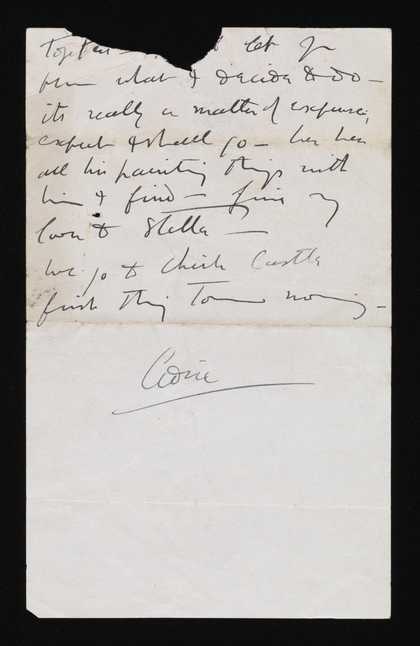 Together — let you
know what I decide to do —
its really a matter of expense,
expect I shall go — he has
all his painting things with
him I find — give my
love to Stella —
we go to Chirk Castle
first thing Tomorrow morning —
Clodie